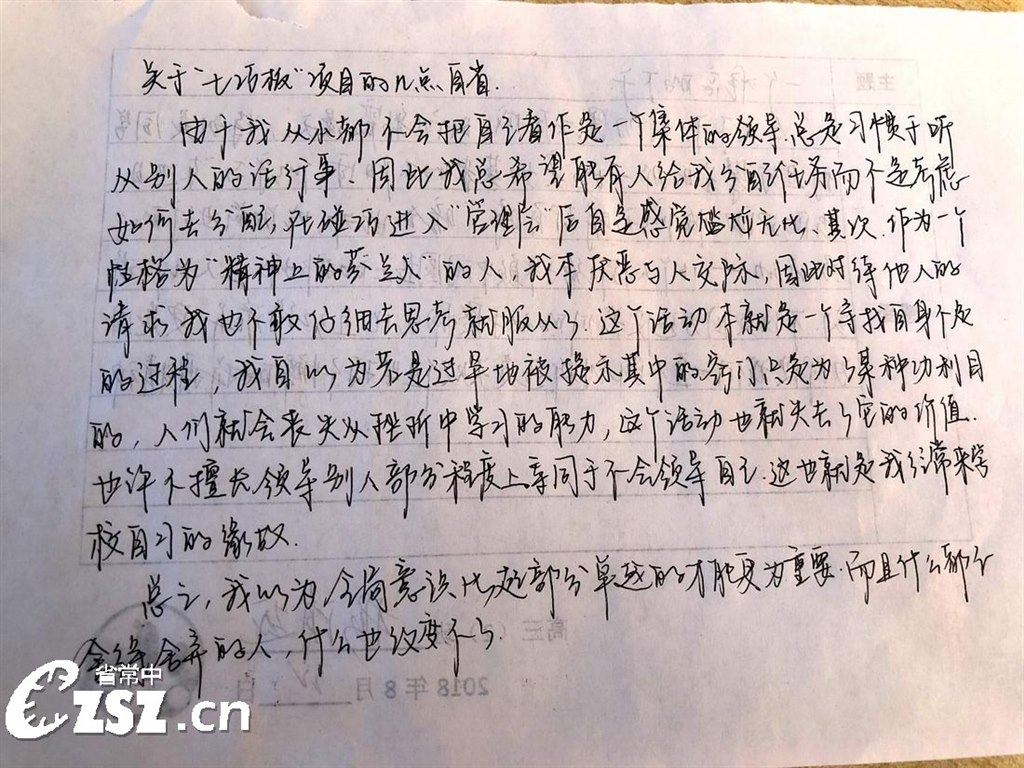 关于“七巧板”项目的几点自省.
由于我从小都不会把自己看作是一个集体的领导,总是习惯于听
从别人的话行事.因此我总希望能有人给我分配任务而不是考虑
如何去分配,在碰巧进入“管理层”后自是感觉尴尬无比.其次.作为一个
性格为“精神上的芬兰人”的人,我本厌恶与人交际,因此对待他人的
请求我也不敢仔细去思考就服从了.这个活动本就是一个寻找自身不足
的过程,我自以为若是过早地被提示其中的窍门只是为了某种功利目
的,人们就会丧失从挫折中学习的能力,这个活动也就失去了它的价值.
也许不擅长领导别人部分程度上等同于不会领导自己.这也就是我经常来学
校自习的缘故.
总之,我以为全局意识比起部分卓越的才能更为重要.而且什么都不
舍得舍弃的人,什么也改变不了.
主题
高三
2018年8月 日
省常中
CZSZ.cn